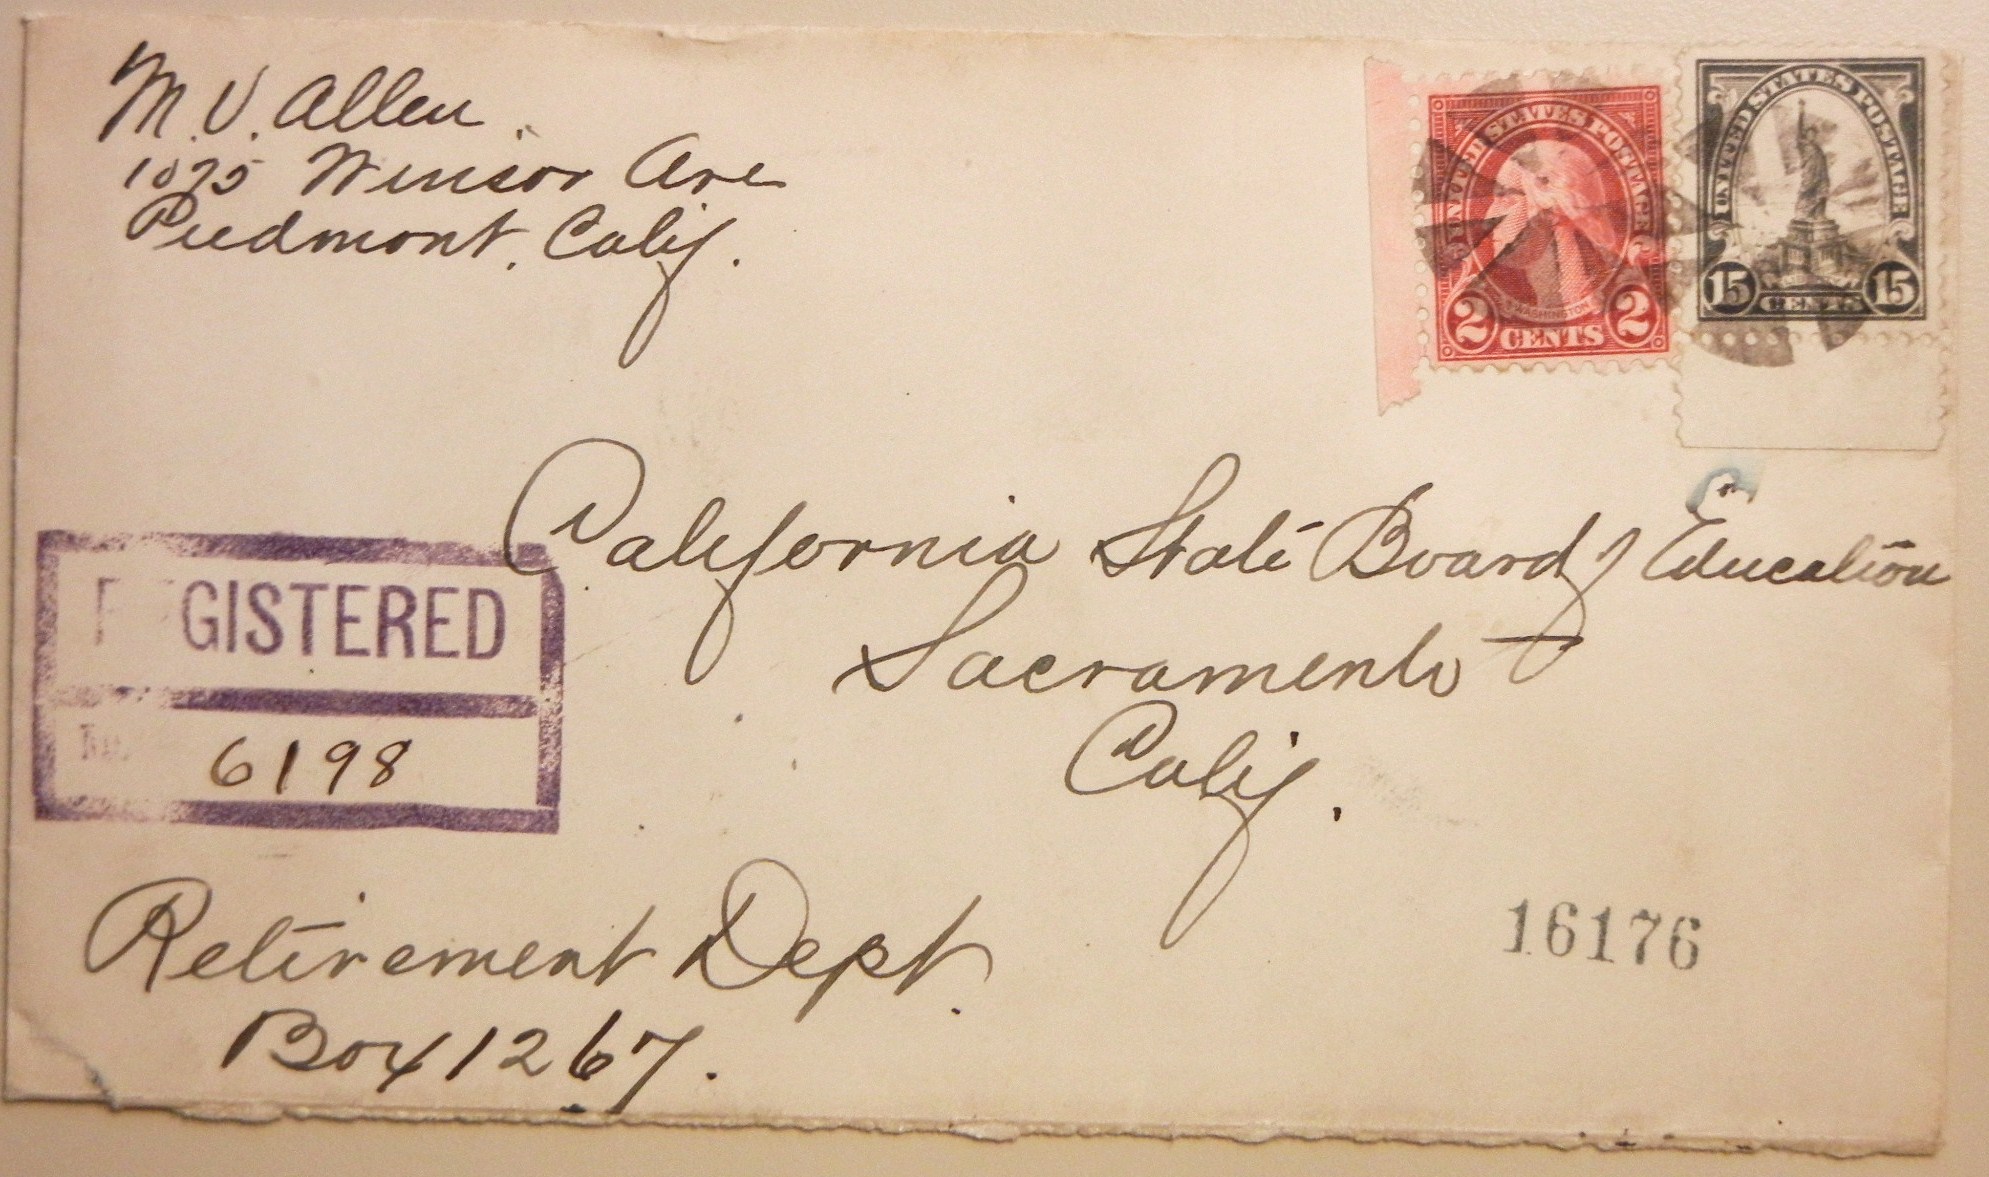 M. V. Allen
1075 Winsor Ave
Piedmont, Calif.
UNITED STATES POSTAGE
WASHINGTON
2 CENTS 2
UNITED STATES POSTAGE
15 CENTS 15
California State Board of Education
Sacramento
Calif.
REGISTERED
No. 6198
16176
Retirement Dept.
Box 1267.